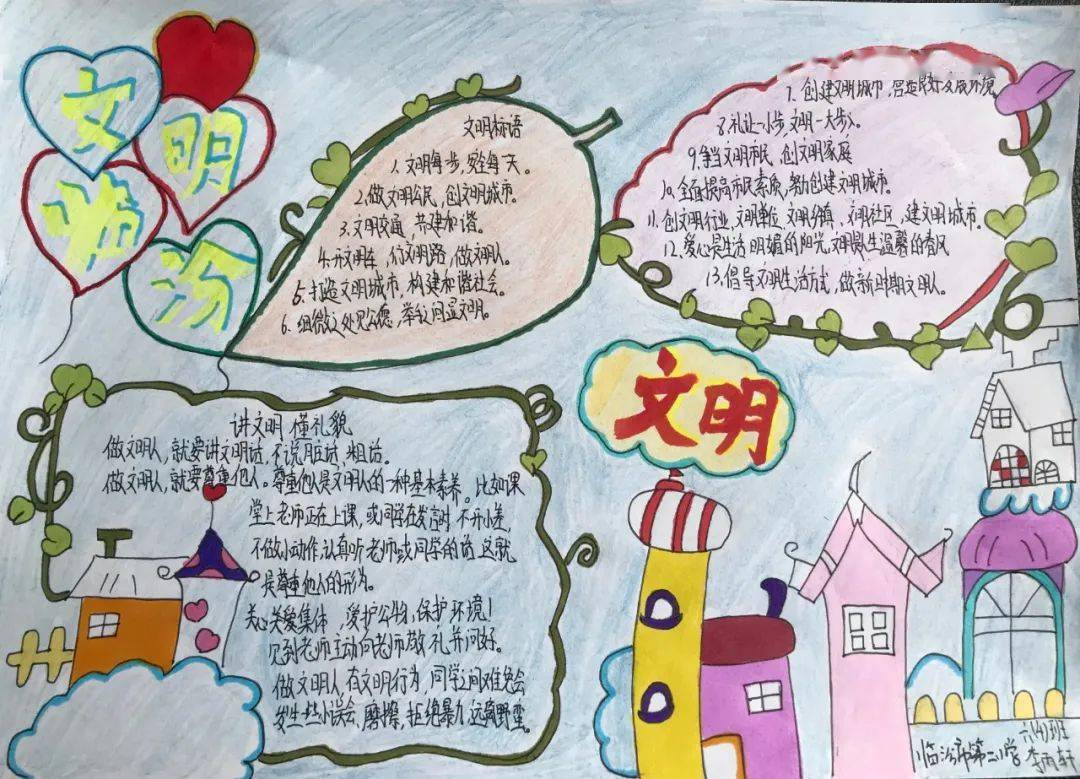 文明
临汾
文明标语
1. 文明每一步,安全每一天。
2. 做文明公民,创文明城市。
3. 文明交通 共建和谐。
4. 开文明车,行文明路,做文明人。
5. 打造文明城市,构建和谐社会。
6. 细微之处见公德,举止间显文明。
7. 创建文明城市,营造良好发展环境
8. 礼让一小步 文明一大步。
9. 争当文明市民,创文明家庭
10. 全面提高市民素质,努力创建文明城市。
11. 创文明行业,文明单位,文明乡镇,文明社区,建文明城市。
12. 爱心是生活明媚的阳光,文明是生温馨的春风
13. 倡导文明生活方式,做新时期文明人。
讲文明 懂礼貌
做文明人,就要讲文明话,不说脏话,粗话。
做文明人,就要尊重他人。尊重他人是文明人的一种基本素养。比如课
堂上老师正在上课,或同学在发言时 不开小差,
不做小动作,认真听老师或同学的话 这就
是尊重他人的行为。
关心关爱集体,爱护公物,保护环境!
见到老师主动向老师敬礼并问好。
做文明人,在文明行为,同学之间难免会
发生些小误会,磨擦,拒绝暴力 远离野蛮
文明
六(4)班
临汾市第二小学